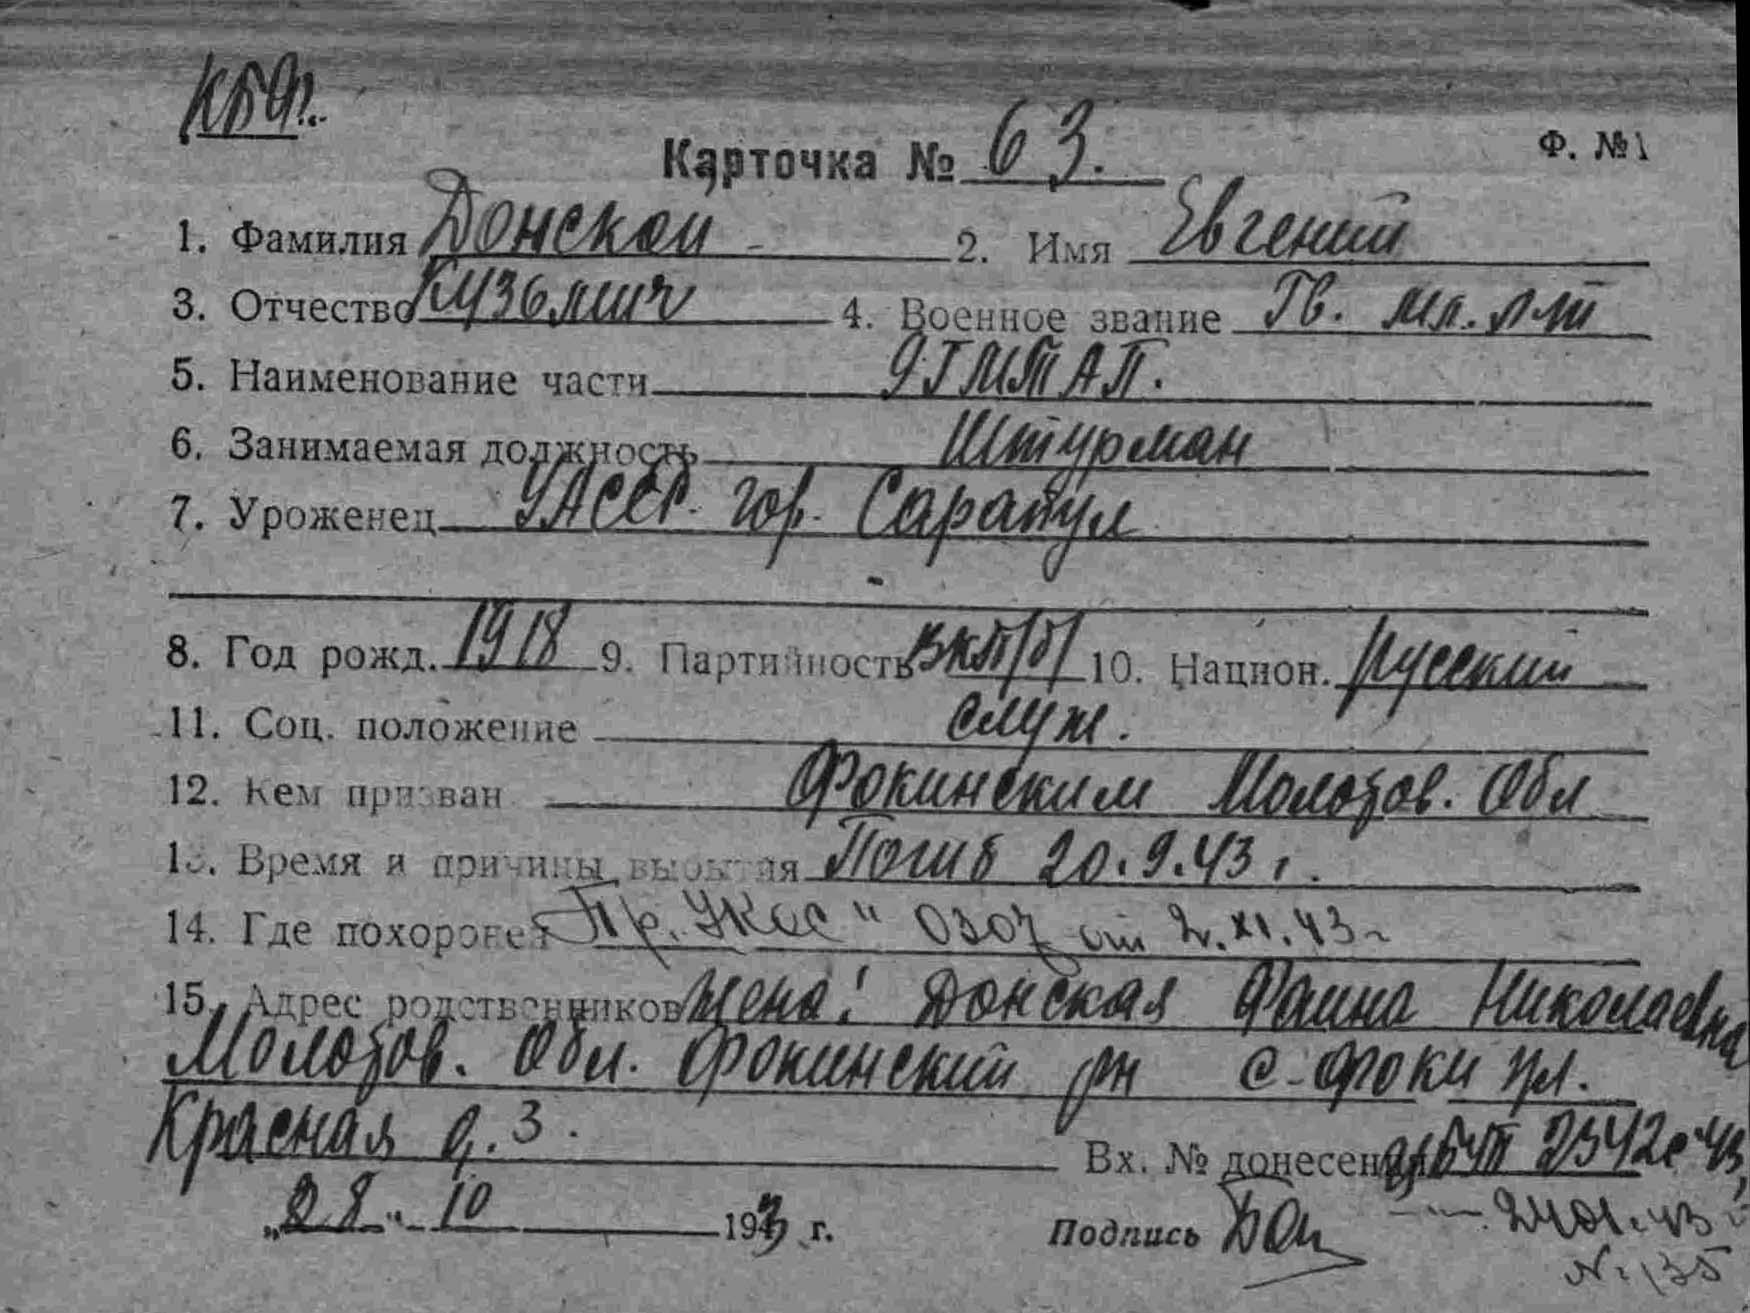 КБФ.
Карточка № 63.
Ф. №1
1. Фамилия Донской 2. Имя Евгений
3. Отчество Кузьмич 4. Военное звание Гв. мл. л-т
5. Наименование части 9 ГМТАП.
6. Занимаемая должность Штурман
7. Уроженец УАССР. гор. Сарапул
8. Год рожд. 1918 9. Партийность ВКП/б/ 10. Национ. Русский
11. Соц. положение служ.
12. Кем призван Фокинским Молотов. Обл
13. Время и причины выбытия Погиб 20.9.43 г.
14. Где похоронен Пр. УКОС" 0307 от 2.XI.43 г
15. Адрес родственников Жена: Донская Фаина Николаевна
Молотов. Обл. Фокинский рн с-Фоки пл.
Красная д. 3.
Вх. № донесения 2342с 43
„28“ 10 1943 г.
Подпись
2401с 43
№ 135